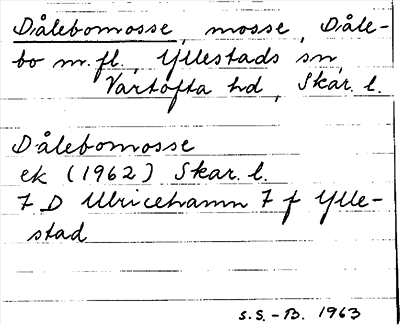 Dålebomosse, mosse, Dåle-
bo m.fl., Yllestads sn,
Vartofta hd, Skar. l.
Dålebomosse
ek (1962) Skar. l.
7 D Ulricehamn 7 f Ylle-
stad
S.S.-B. 1963